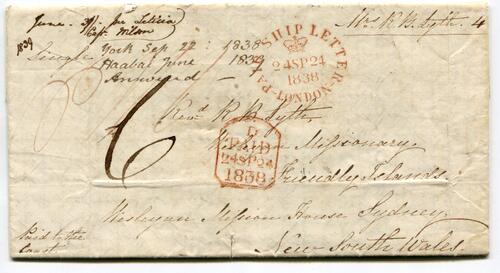 June per Letitia
Capt. Wilson
1839
Single
York Sep 22: 1838
Haabai June 1839
Answered —
Mrs R. B. Lyth. 4
SHIP LETTER
24SP24
1838
PAID-LONDON
6
Revd R B Lyth,
Wesleyan Missionary,
Friendly Islands
PAID
24SP24
1838
Wesleyan Mission House Sydney
New South Wales.
Paid to the
Coast.